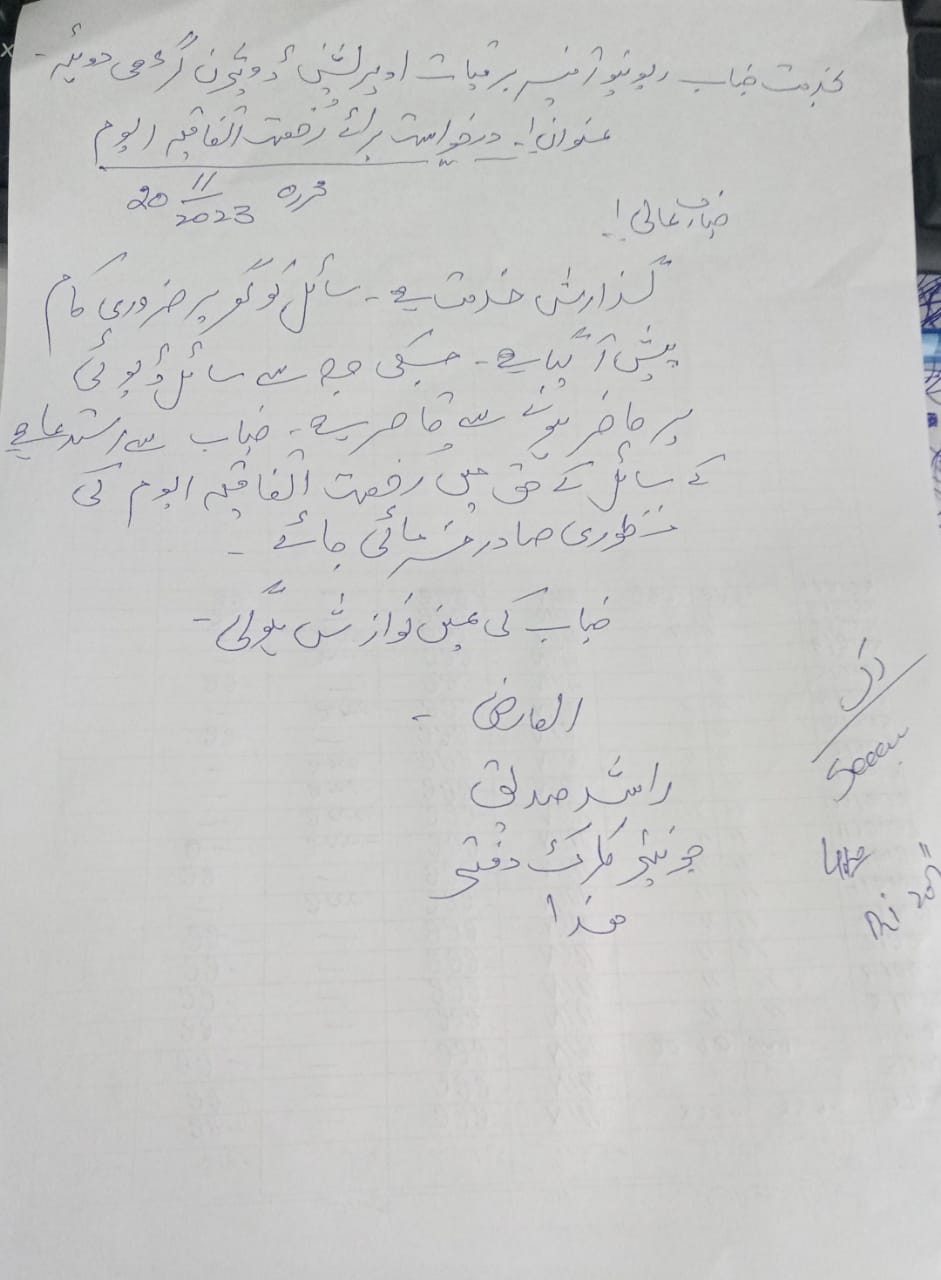 بخدمت جناب ریونیو آفیسر برقیات اوپریشن ڈویژن گڑھی دوپٹہ۔
عنوان!۔ درخواست برائے رخصت اتفاقیہ الیوم
محررہ 20/11/2023
جناب عالی!۔
گذارش خدمت ہے۔ سائل کو گھر پر ضروری کام
پیش آ گیا ہے۔ جسکی وجہ سے سائل ڈیوٹی
پر حاضر ہونے سے قاصر ہے۔ جناب سے استدعا ہے
کے سائل کے حق میں رخصت اتفاقیہ الیوم کی
منظوری صادر فرمائی جائے۔
جناب کی عین نوازش ہوگی۔
العارض۔
راشد صدیق
جونیئر کلرک دفتر
ھذا
Seen